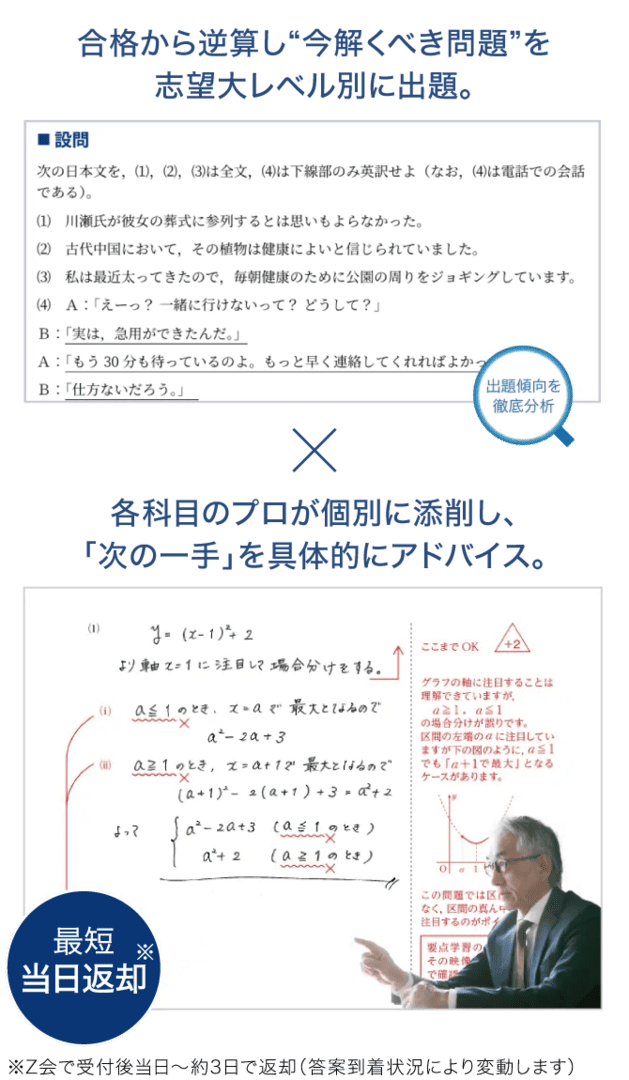 合格から逆算し“今解くべき問題”を
志望大レベル別に出題。
■ 設問
次の日本文を，⑴，⑵，⑶は全文，⑷は下線部のみ英訳せよ（なお，⑷は電話での会話
である）。
⑴ 川瀬氏が彼女の葬式に参列するとは思いもよらなかった。
⑵ 古代中国において，その植物は健康によいと信じられていました。
⑶ 私は最近太ってきたので，毎朝健康のために公園の周りをジョギングしています。
⑷ A：「えーっ？ 一緒に行けないって？ どうして？」
B：「実は，急用ができたんだ。」
A：「もう 30 分も待っているのよ。もっと早く連絡してくれればよかっ
B：「仕方ないだろう。」
出題傾向を
徹底分析
×
各科目のプロが個別に添削し、
「次の一手」を具体的にアドバイス。
⑴ y = (x-1)²+2
より軸 x=1 に注目して場合分けをする。
(i) a≦1 のとき, x=a で 最大となるので
a²-2a+3
(ii) a≧1 のとき, x=a+1 で 最大となるので
(a+1)²-2(a+1)+3=a²+2
よって a²-2a+3 (a≦1 のとき)
a²+2 (a≧1 のとき)
ここまで OK +2
グラフの軸に注目することは
理解できていますが，
a≧1，a≦1
の場合分けが誤りです。
区間の左端の a に注目してい
ますが下の図のように，a≦1
でも「a＋1で最大」となる
ケースがあります。
y
O a 1
この問題では区
なく，区間の真ん中
注目するのがポイ
要点学習の
その映像
で確認
最短
当日返却※
※Z会で受付後当日～約3日で返却（答案到着状況により変動します）